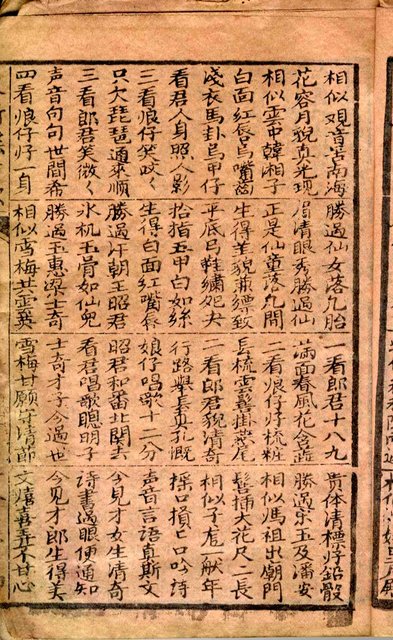 相似观音南海 勝過仙女落九胎 一看郎君十八九 贵体清標好
花容月貌真光現 眉清眼秀勝過仙 滿面春風花含蕊 勝過宋玉及潘安
相似雲中韓湘子 正是仙童落九間 二看娘仔好梳粧 相似馮祖出廟門
白面紅唇烏嘴齒 生得美貌兼標致 長梳雲鬢掛燕尾 髻插大花尺二長
淺衣馬卦烏甲仔 平底烏鞋繡尖 二看郎君貌清奇 相似子一般年
看君人身照人影 拾指五甲白如絲 行路舉長真孔慨 口口吟詩
三看娘仔笑 生得白面紅嘴唇 娘仔唱歌十二分 声音言語真斯文
只欠琵琶過來順 勝過汗朝王昭君 昭君和番北関去 今見才女生清奇
三看郎君笑微々 氷肌玉骨如仙兒 看君唱歌聰明子 詩書過眼便通知
声音句句世間希 勝過玉惠梁士奇 士奇才子今過世 今見才郎生得美
四看娘仔好一身 相似雪梅共英 雪梅甘願守清節 文不甘心